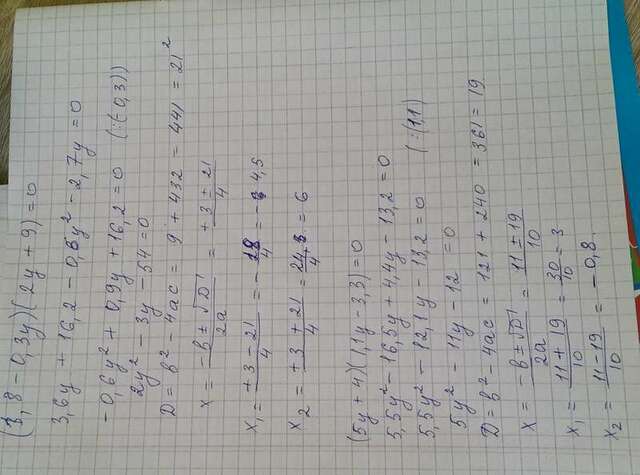 (1,8 - 0,3y)(2y + 9) = 0
3,6y + 16,2 - 0,6y² - 2,7y = 0
-0,6y² + 0,9y + 16,2 = 0 (:(-0,3))
2y² - 3y - 54 = 0
D = b² - 4ac = 9 + 432 = 441 = 21²
x = -b ± √D / 2a = +3 ± 21 / 4
x₁ = +3 - 21 / 4 = -18 / 4 = -4,5
x₂ = +3 + 21 / 4 = 24 / 4 = 6
(5y + 4)(1,1y - 3,3) = 0
5,5y² - 16,5y + 4,4y - 13,2 = 0
5,5y² - 12,1y - 13,2 = 0 (:(1,1)
5y² - 11y - 12 = 0
D = b² - 4ac = 121 + 240 = 361 = 19
x = -b ± √D / 2a = 11 ± 19 / 10
x₁ = 11 + 19 / 10 = 30 / 10 = 3
x₂ = 11 - 19 / 10 = -0,8.